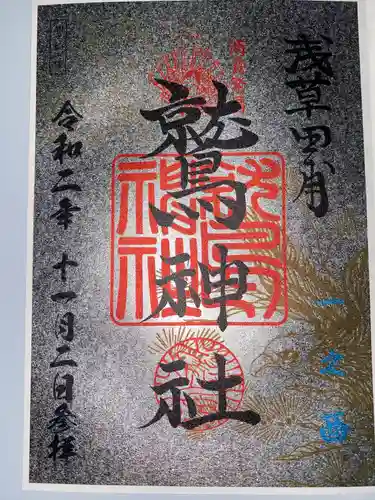 浅草田甫
一之酉
鷲神社
令和二年十一月二日参拝